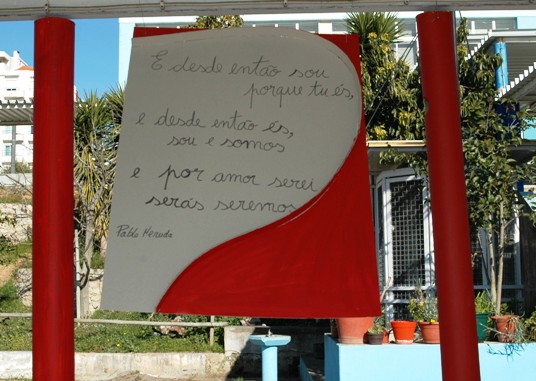 E desde então sou
porque tu és,
e desde então és,
sou e somos
e por amor serei
serás seremos
Pablo Neruda